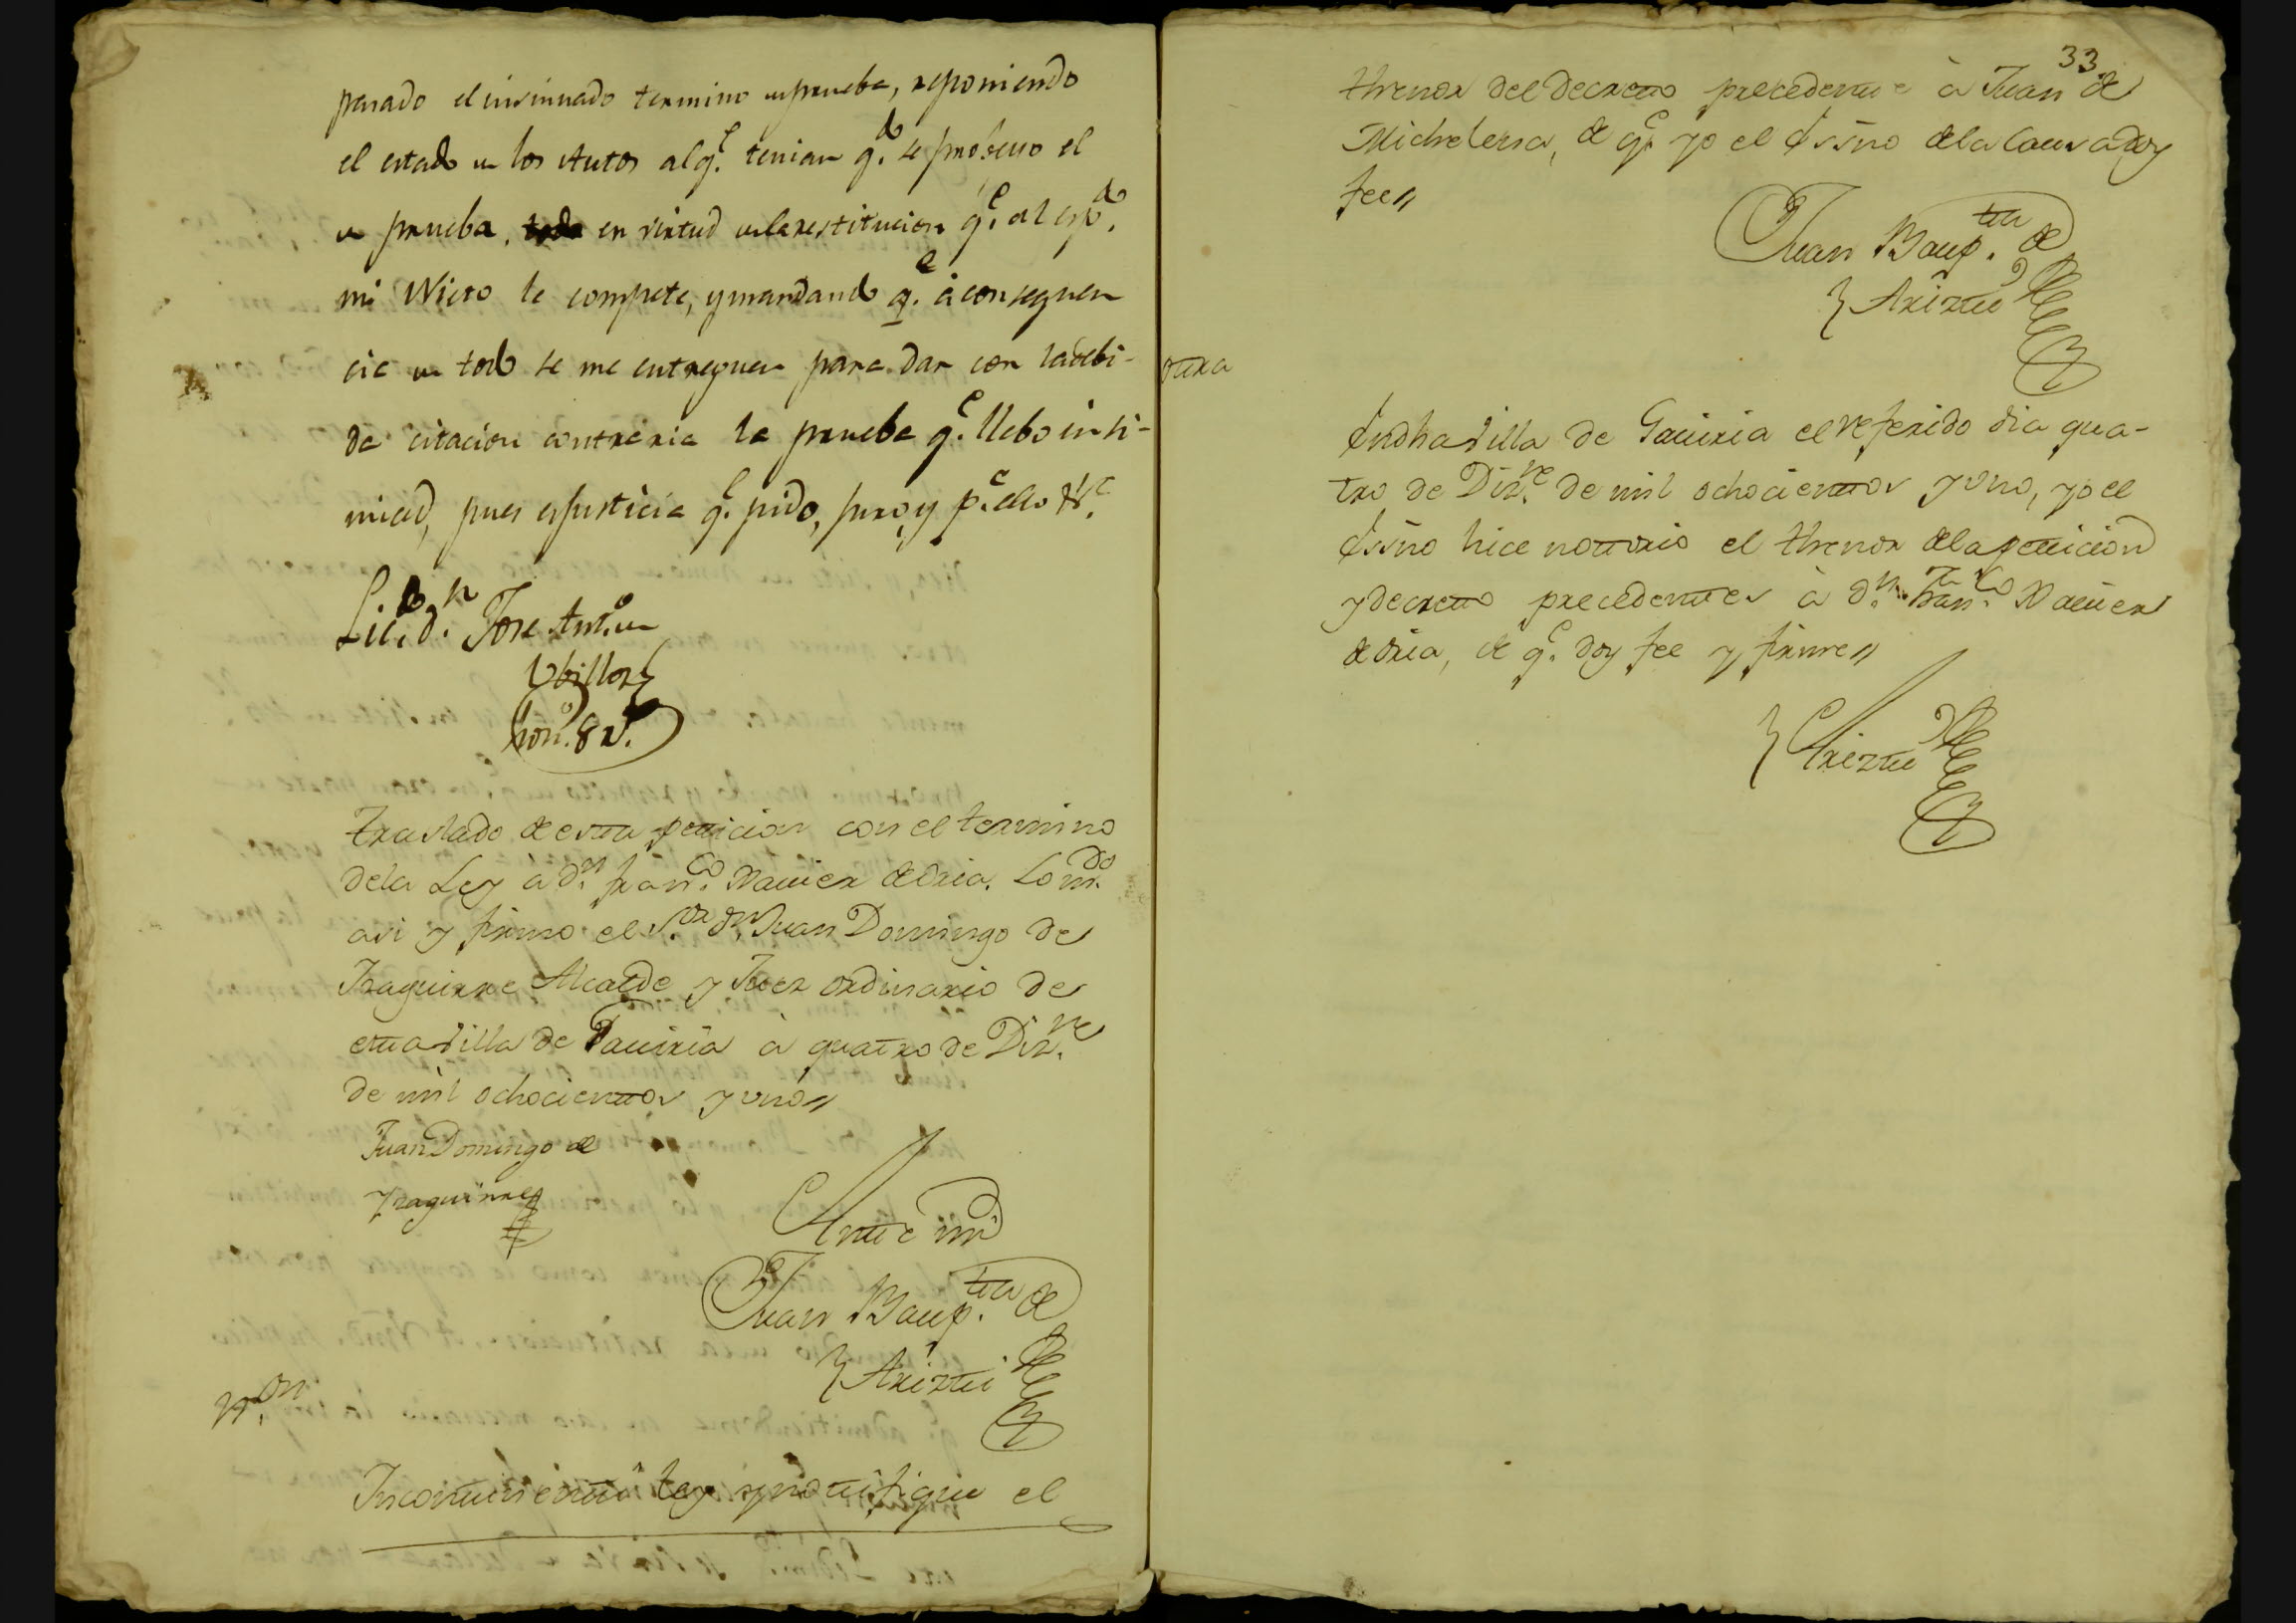 pasado el insinuado termino de prueba, reponiendo
el estado de los Autos al q.e tenian q.do se probeyo el
de prueba, en virtud de la restitucion q.e al exp.do
mi Nieto le compete, y mandando q.e à consequen
cia de todo se me entreguen para dar con la debi-
da citacion contraria la prueba q.e llebo insi-
nuada, pues es justicia q.e pido, juro, y p.a ello &.a
Lic.do d.n Jose Ant.o de
Ubillos
hon.o 8 r.
Traslado de esta peticion con el termino
de la Ley à d.n Fran.co Xavier de Oria. Lo m.do
asi y firmo el S.or d.n Juan Domingo de
Yraguirre Alcalde y Juez ordinario de
esta Villa de Gaviria à quatro de Diz.re
de mil ochocientos y uno //
Juan Domingo de
Yraguirre
Ante mi
Juan Baup.ta de
Ariztii
N.on
Incontinenti ley y notifique el
33
thenor del decreto precedente à Juan de
Michelena, de q.e yo el Essno de la Causa doy
fee //
Juan Baup.ta de
Ariztii
otra
En dha Villa de Gaviria el referido dia qua-
tro de Diz.re de mil ochocientos y uno, yo el
Essno hice notorio el thenor de la peticion
y decreto precedentes à d.n Fran.co Xavier
de Oria, de q.e doy fee y firme //
Ariztii